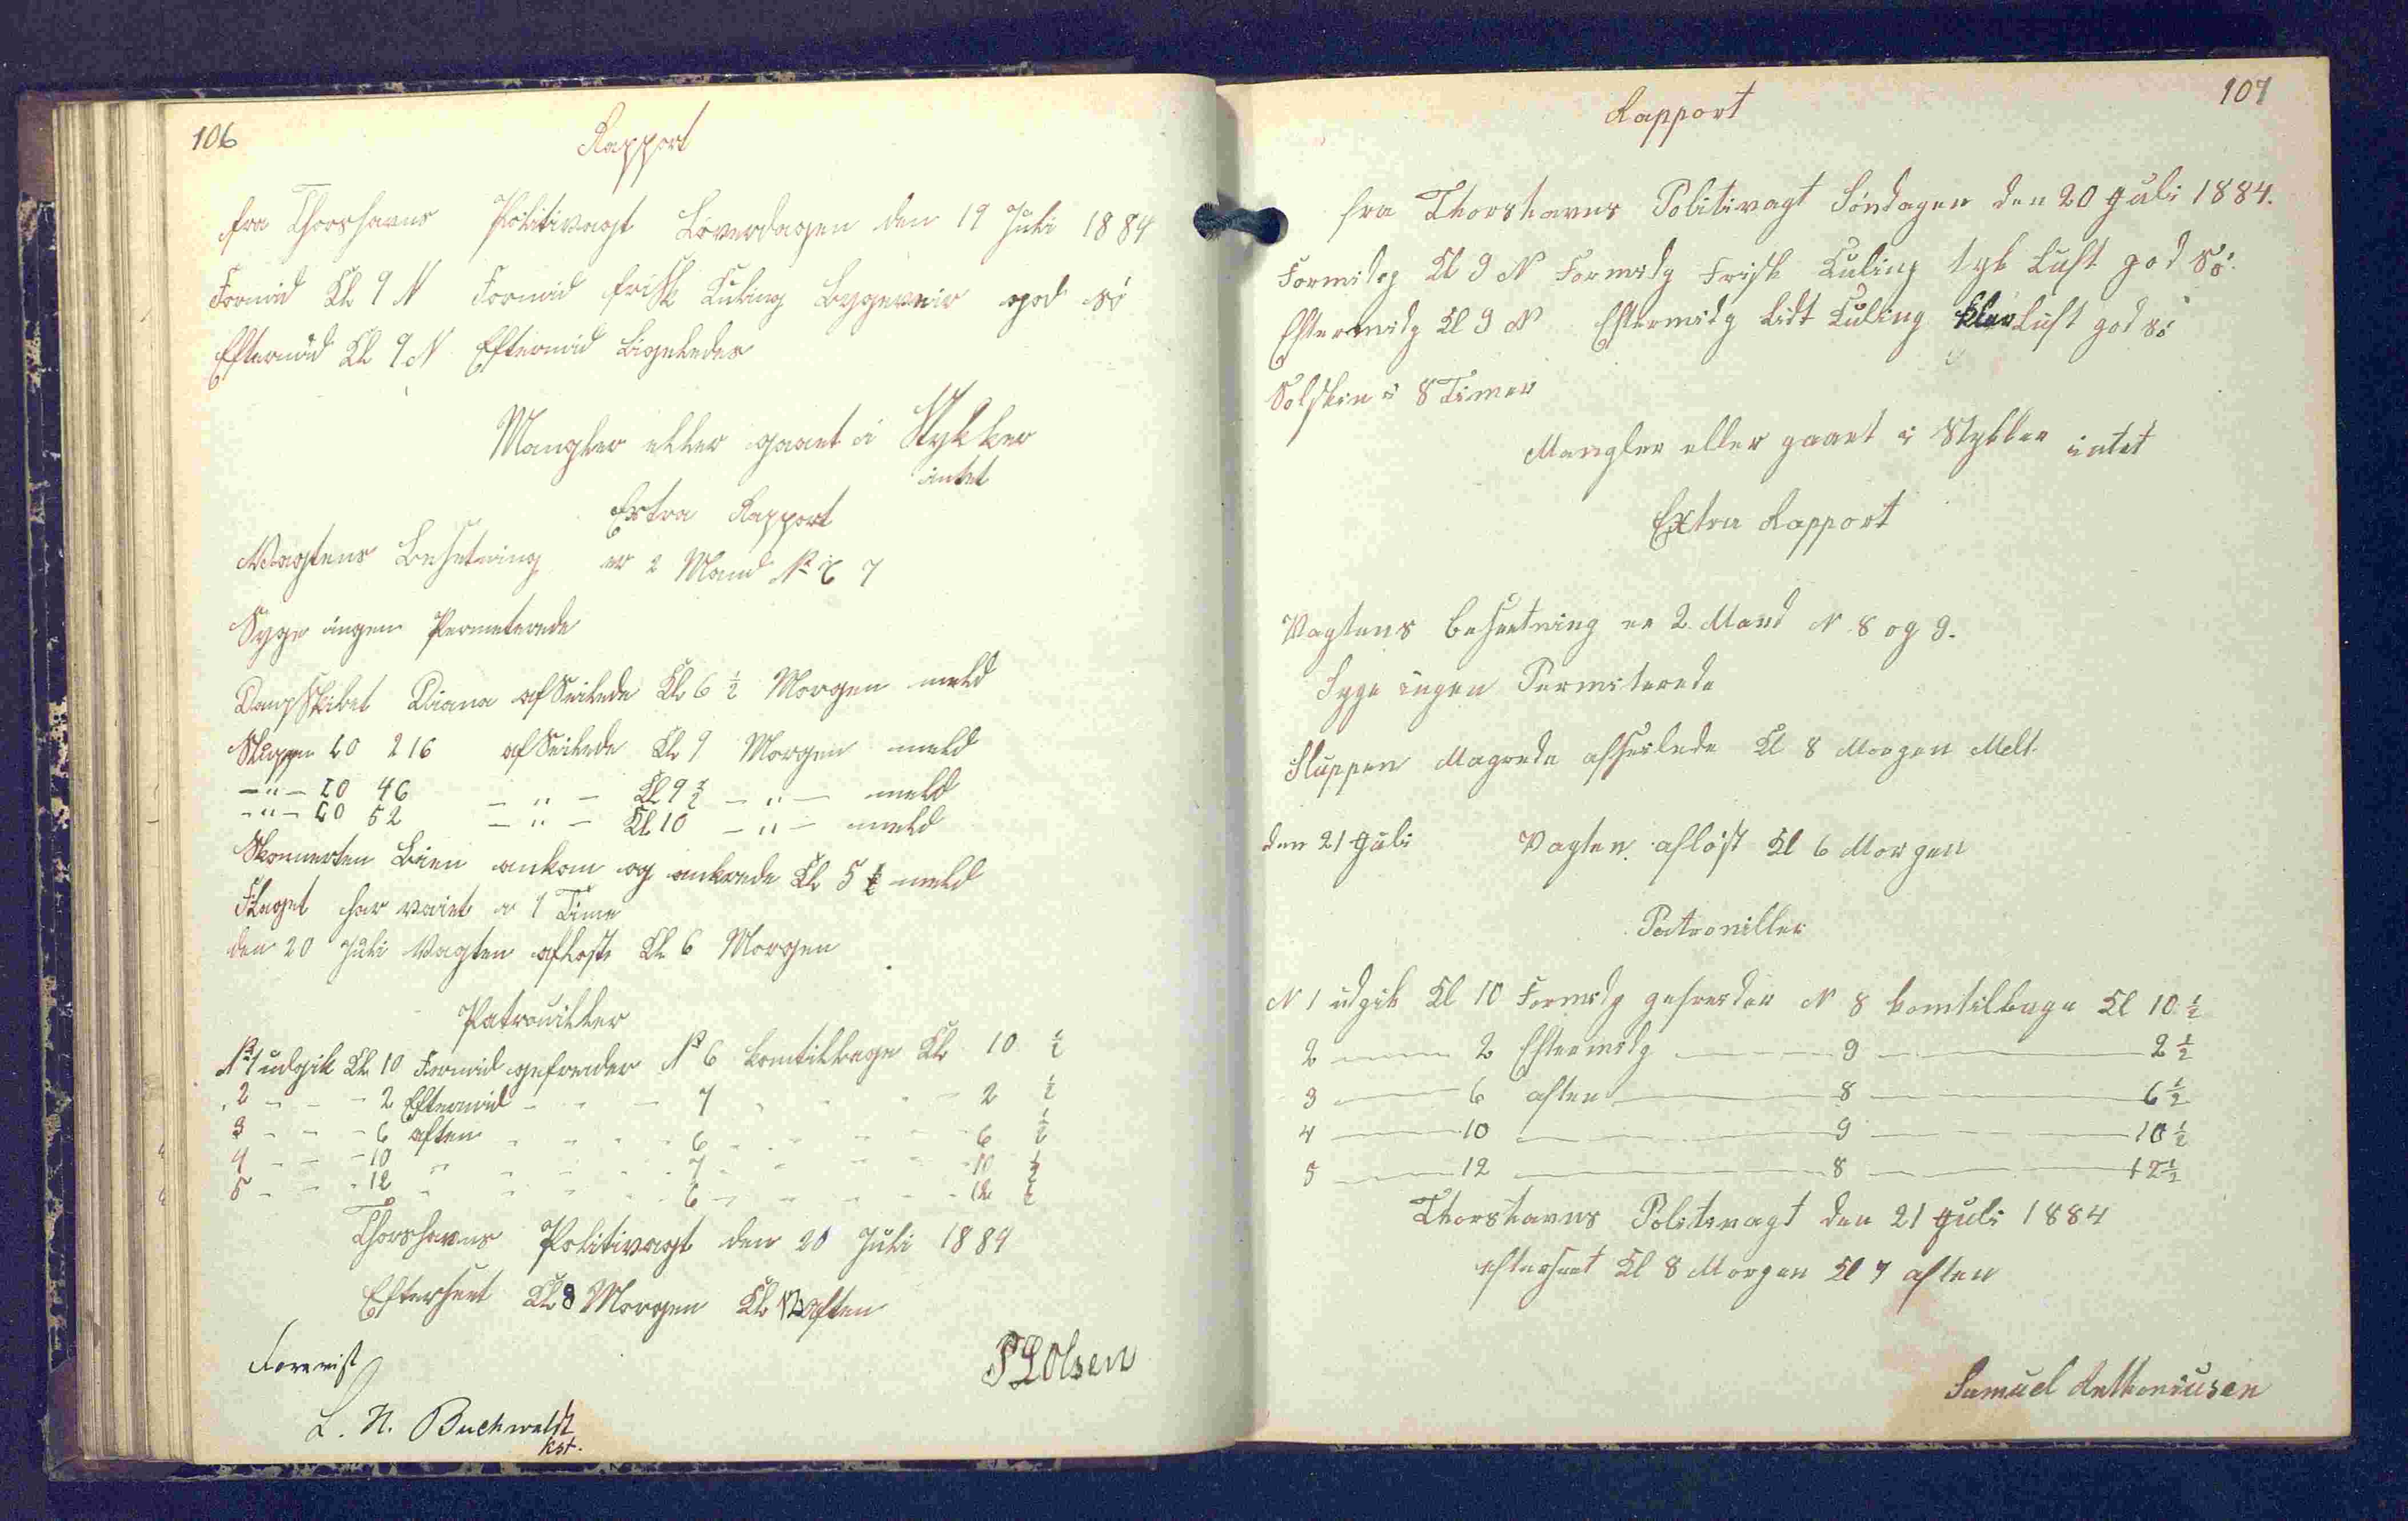 106
Rapport
fra Thorshavns Politivagt Löverdagen den 19 Juli 1884
Formid Kl 9 N Formid frisk Kuling Bygeveir god sö
Eftermid Kl 9 N Eftermid Ligeledes
Mangler eller gaaet i Stykker
intet
Extra Rapport
Vagtens Besetning er 2 Mand No 6 7
Syge ingen Permeterede
Dampskibet Diana afseilede Kl 6 1/2 Morgen meld
Sluppen LO 216 afseilede Kl 9 Morgen meld
-"- LO 46 - " - Kl 9 1/2 - " - meld
-"- LO 52 - " - Kl 10 - " - meld
Skonnerten Bien ankom og ankrede Kl 5 1/2 meld
Flaget har vaiet i 1 Time
den 20 Juli Vagten aflöst Kl 6 Morgen
Patrouiller
No 1 udgik Kl 10 Formid gefreider No 6 komtilbage Kl 10 1/2
2 - - - 2 Eftermid - - - 7 - - - 2 1/2
3 - - - 6 aften - - - 6 - - - 6 1/2
4 - - - 10 " - - - 7 - - - 10 1/2
5 - - - 12 - - - 6 - - - 12 1/2
Thorshavns Politivagt den 20 Juli 1884
Efterseet Kl 8 Morgen Kl aften
Forevist
P L Olsen
L. N. Buchwaldt
kst.
107
Rapport
fra Thorshavns Politivagt Söndagen den 20 Juli 1884.
Formidg Kl 9 N Formidg Frisk Kuling tyk Luft god Sö.
Eftermidg Kl 9 N Eftermidg Lidt Kuling klar Luft god sö
Solskin i 8 Timer
Mangler eller gaaet i Stykker intet
Extra Rapport
Vagtens besaetning er 2 Mand N 8 og 9.
Syge ingen Permiterede
Sluppen afseilede Kl 8 Morgen Melt.
den 21 Juli Vagten aflöst Kl 6 Morgen
Patroniller
N 1 udgik Kl 10 Formidg gefreider N 8 komtilbage Kl 10 1/2
2 — 2 Eftermidg — 9 — 2 1/2
3 — 6 aften — 8 — 6 1/2
4 — 10 — 9 — 10 1/2
5 — 12 — 8 — 12 1/2
Thorshavns Politivagt den 21 Juli 1884
efterseet Kl 8 Morgen Kl 7 aften
Samuel Anthoniusen